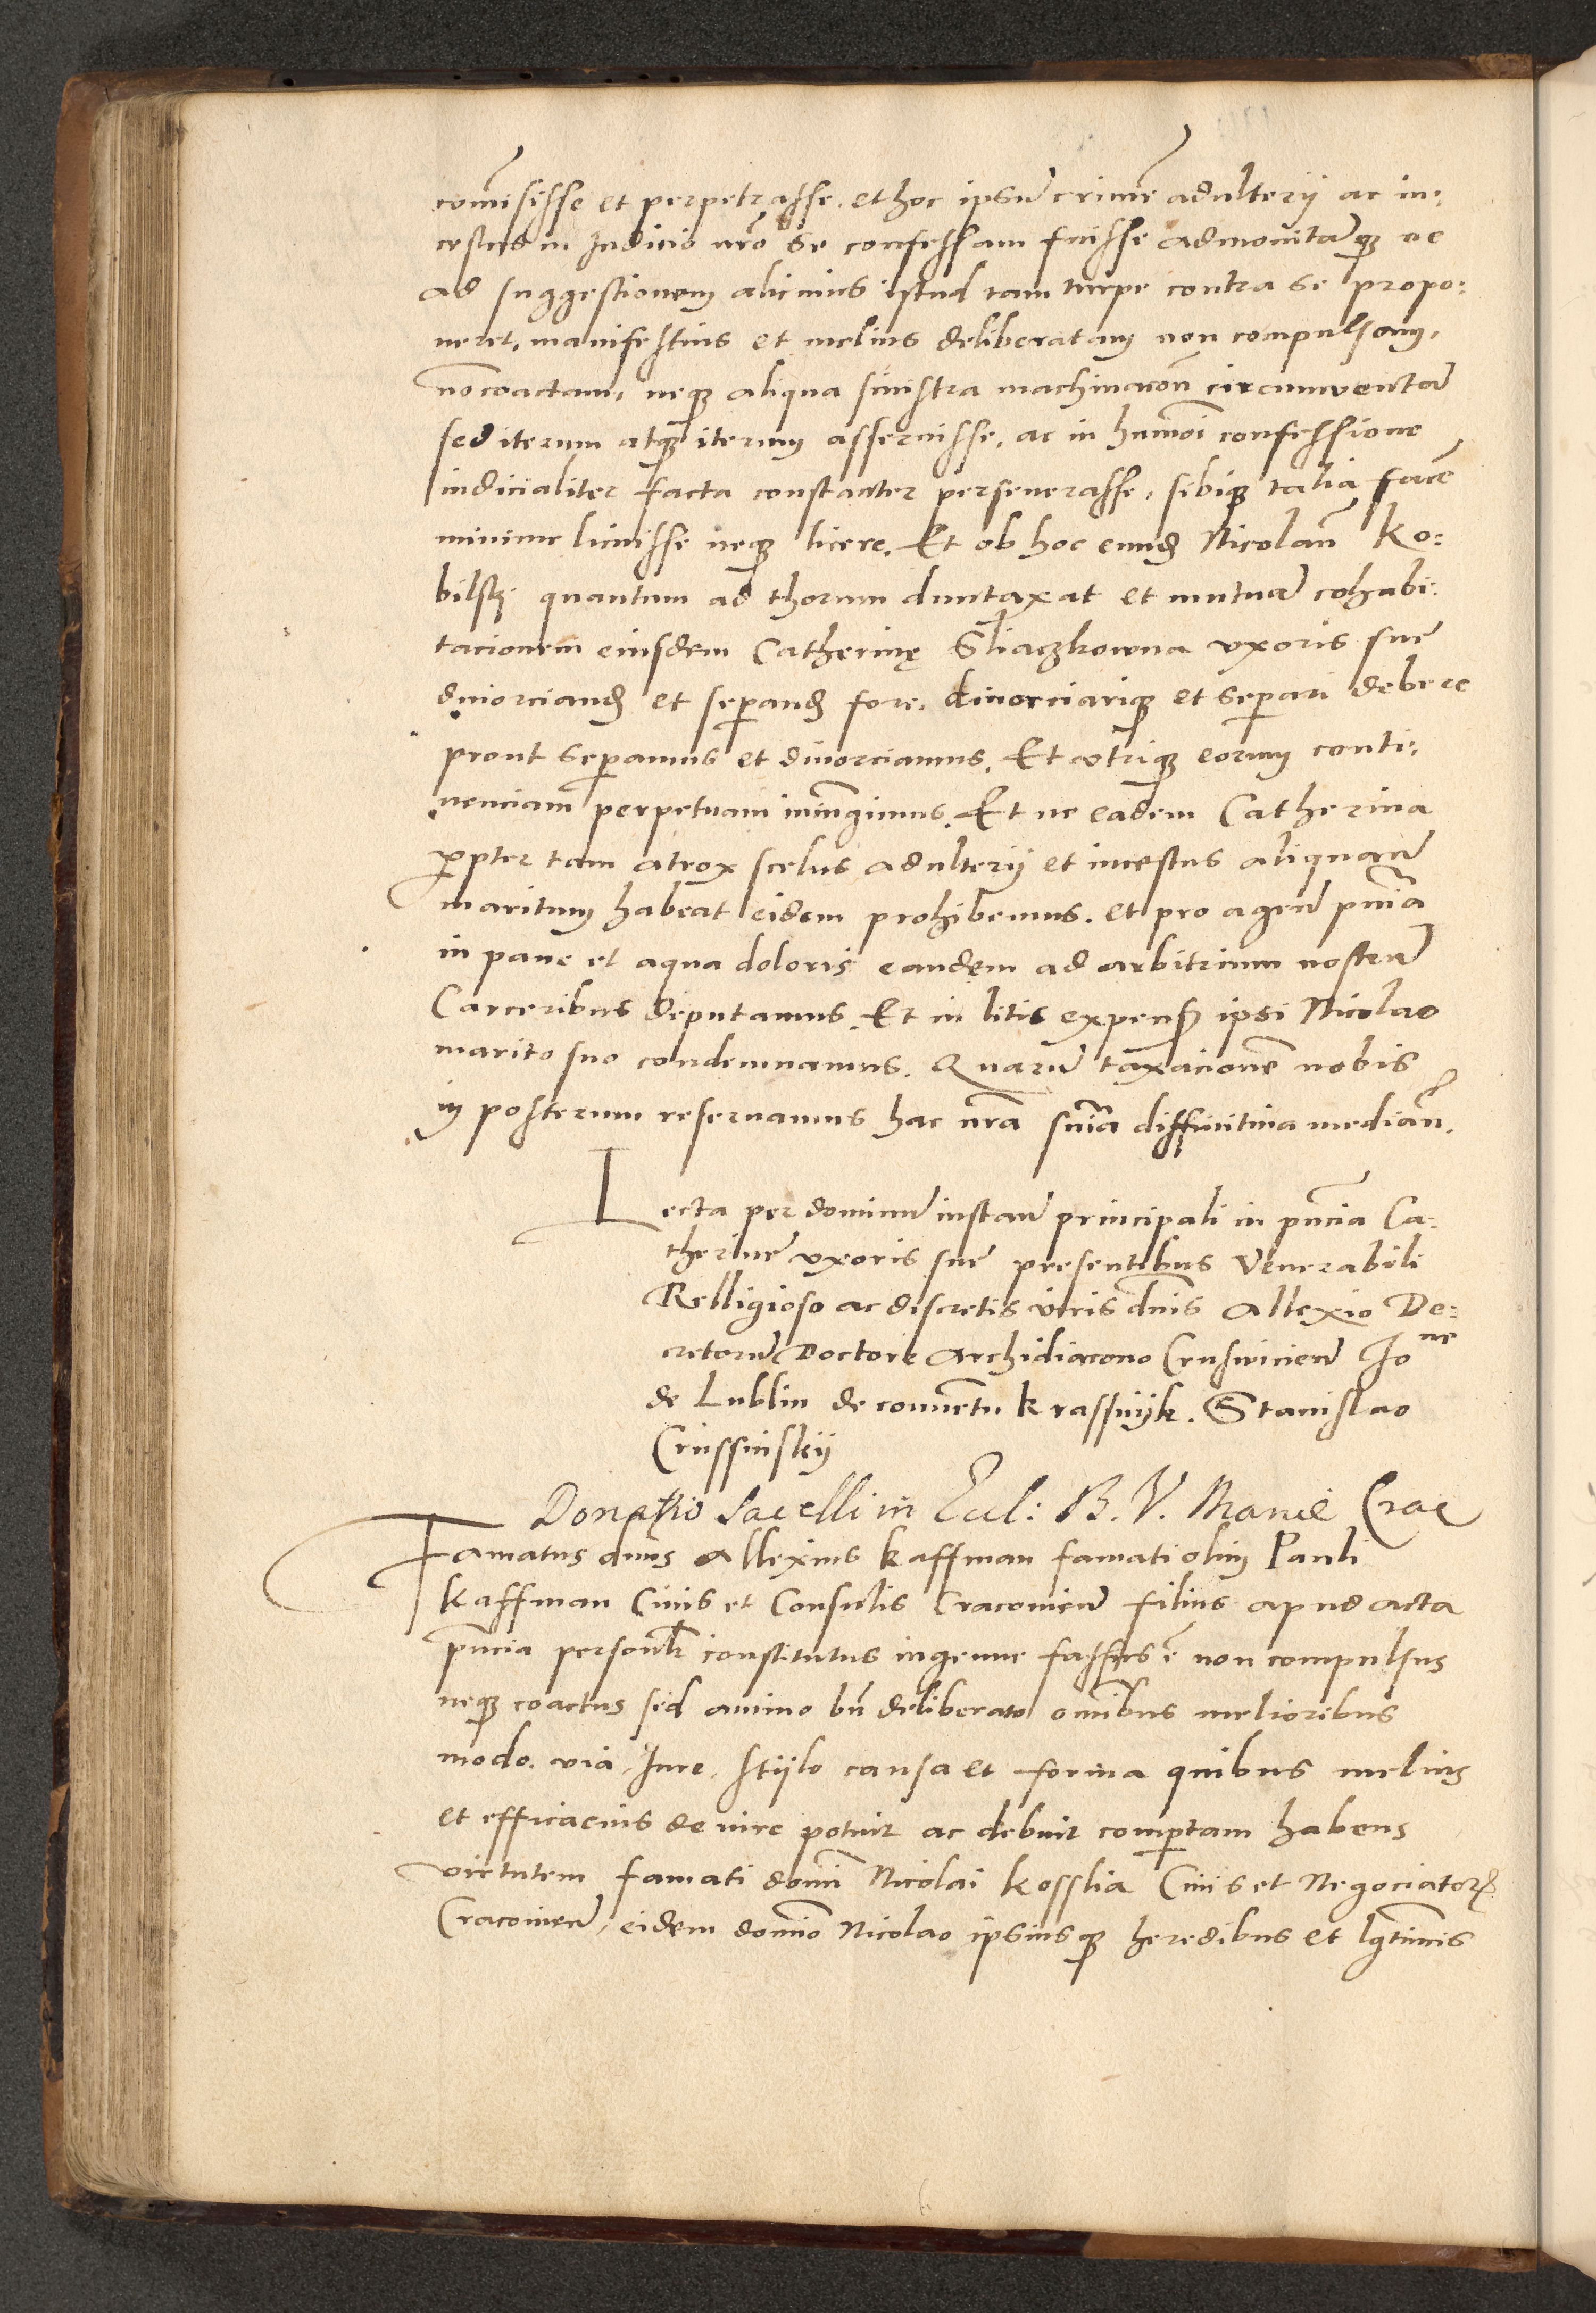 com̃isisse et perpetrasse. et hoc ipsũ crimẽ adulterij ac in:
cestus in Judicio nr̃o se confessam fuisse admonitãq; ne
ad suggestionem alicuius istud tam turpe contra se propo:
neret, manifestius et melius deliberatam non compulsam,
nõ coactam, neq; aliqua sinistra machinacõn circumventã
sed iterum atq; iterum asseruisse. ac in huiusmõi confessione
iudicialiter facta constanter perseverasse, sibiq; talia facẽ
minime licuisse neq; licere. Et ob hoc eund. Nicolaũ Ko:
bilskj quantum ad thorum duntaxat et mutuã cohabi:
tacionem eiusdem Catherinę Sliaczkowna uxoris suę
divorciand. et sep̃and. fore. divorciariq; et sep̃ari debere
prout sep̃amus et divorciamus. Et utriq; eorum conti:
nenciam perpetuam iniungimus. Et ne eadem Catherina
p̃pter tam atrox scelus adulterij et incestus aliquem
maritum habeat eidem prohibemus. et pro agenã pñia
in pane et aqua doloris eandem ad arbitrium nostrũ
Carceribus deputamus. Et in litis expens. ipsi Nicolao
marito suo condemnamus. Quarũ taxacionẽ nobis
in posterum reservamus hac nr̃a sñia diffinitiva mediañ.
Lecta per dominũ instañ principali in pñcia Ca:
therinę uxoris suę presentibus Venerabili
Relligioso ac discretis viris dñis Allexio De:
cretorũ Doctore Archidiacono Crusviciẽn Jo ne
de Lublin de convẽtu Krassnijk. Stanislao
Crussinskij
Donatio Sacelli in Eccl: B. V. Mariæ Crac
Famatus dñus Allexius Kaffman famati olim Pauli
Kaffman Civis et Consulis Cracovieñ filius apud acta
pñcia personlr̃ constitutus ingenue fassus ẽ non compulsus
neq; coactus sed animo bñ deliberato om̃ibus melioribus
modo. via, Jure, stijlo causa et forma quibus melius
et efficacius de iure potuit ac debuit comp̃tam habens
virtutem famati domĩ Nicolai Kosslia Civis et Negociatoris
Cracovieñ, eidem domĩo Nicolao ipsiusq; heredibus et lgĩtimis